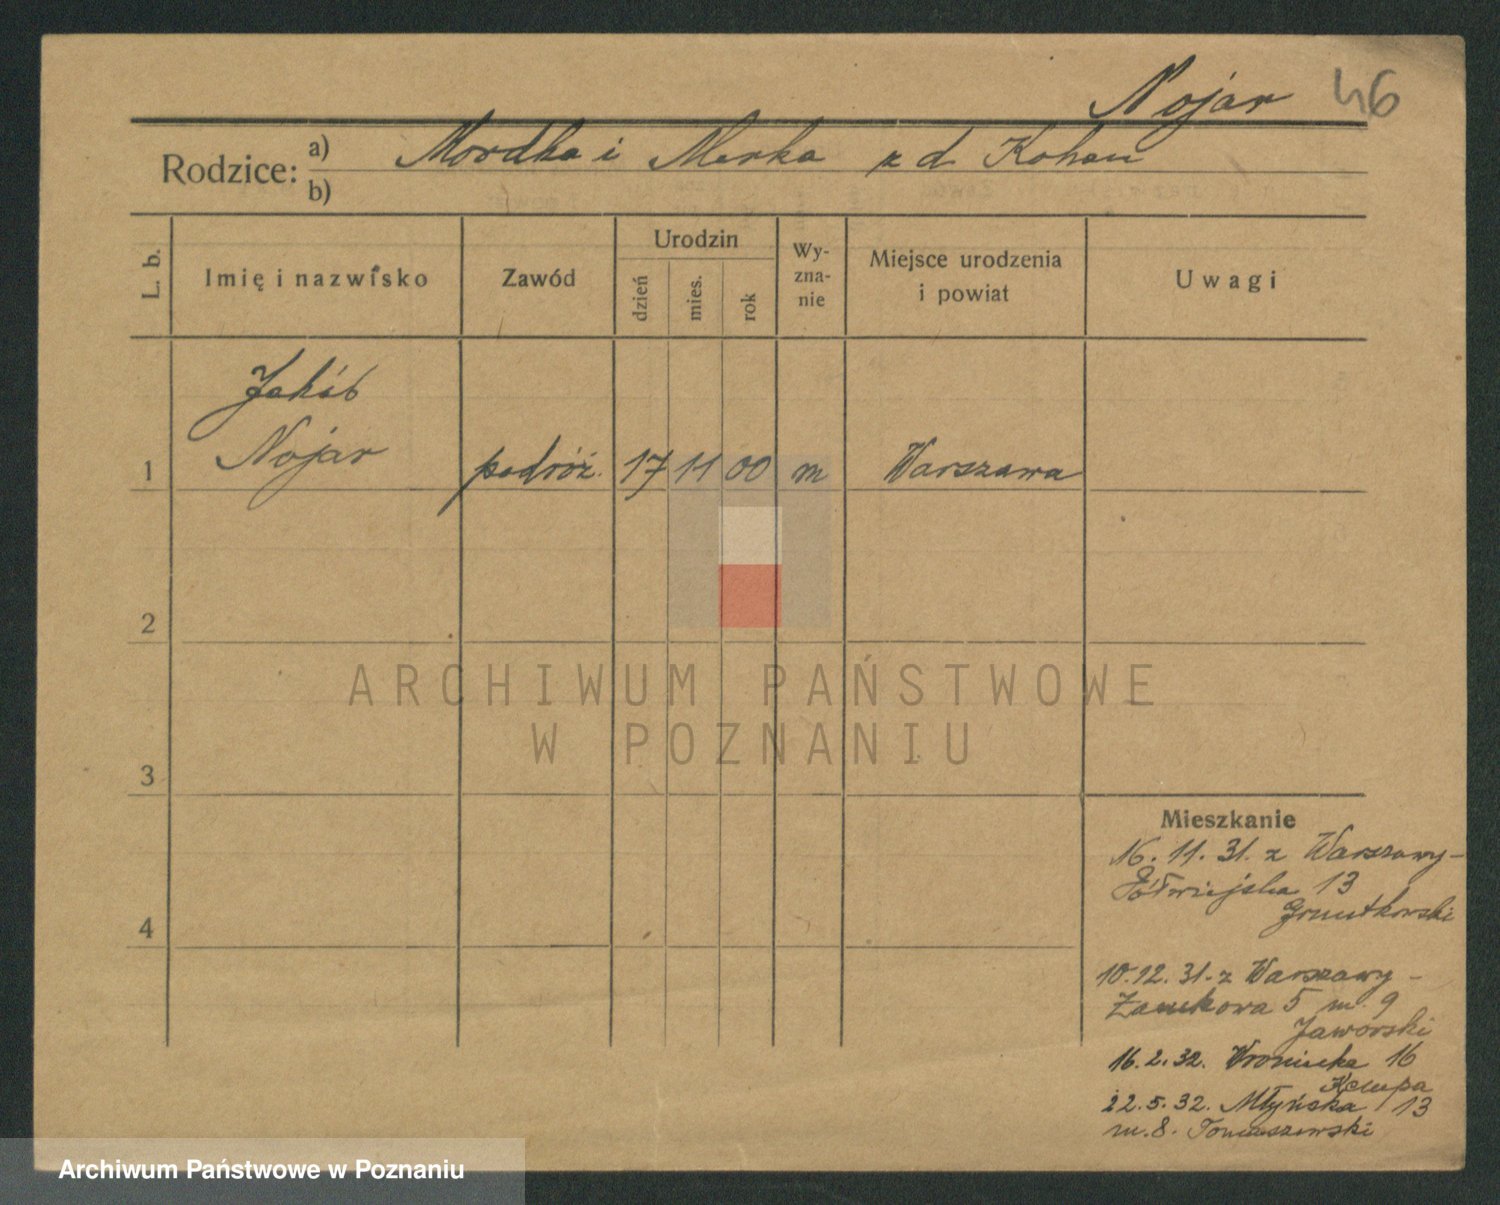 Nojar 46
Rodzice: a) Mordka i Merka z d Kohan
b)
L. b. Imię i nazwisko Zawód Urodzin dzień mies. rok Wy-zna-nie Miejsce urodzenia i powiat Uwagi
Jakób
1 Nojar podróż. 17 11 00 m Warszawa
2
ARCHIWUM PAŃSTWOWE
W POZNANIU
3
Mieszkanie
16. 11. 31. z Warszawy -
Półwiejska 13
10. 12. 31. z Warszawy -
Zamkowa 5 m. 9
Jaworski
16. 2. 32. Wroniecka 16
Kempa
22. 5. 32. Młyńska 13
m. 8. Tomaszewski
4
Archiwum Państwowe w Poznaniu